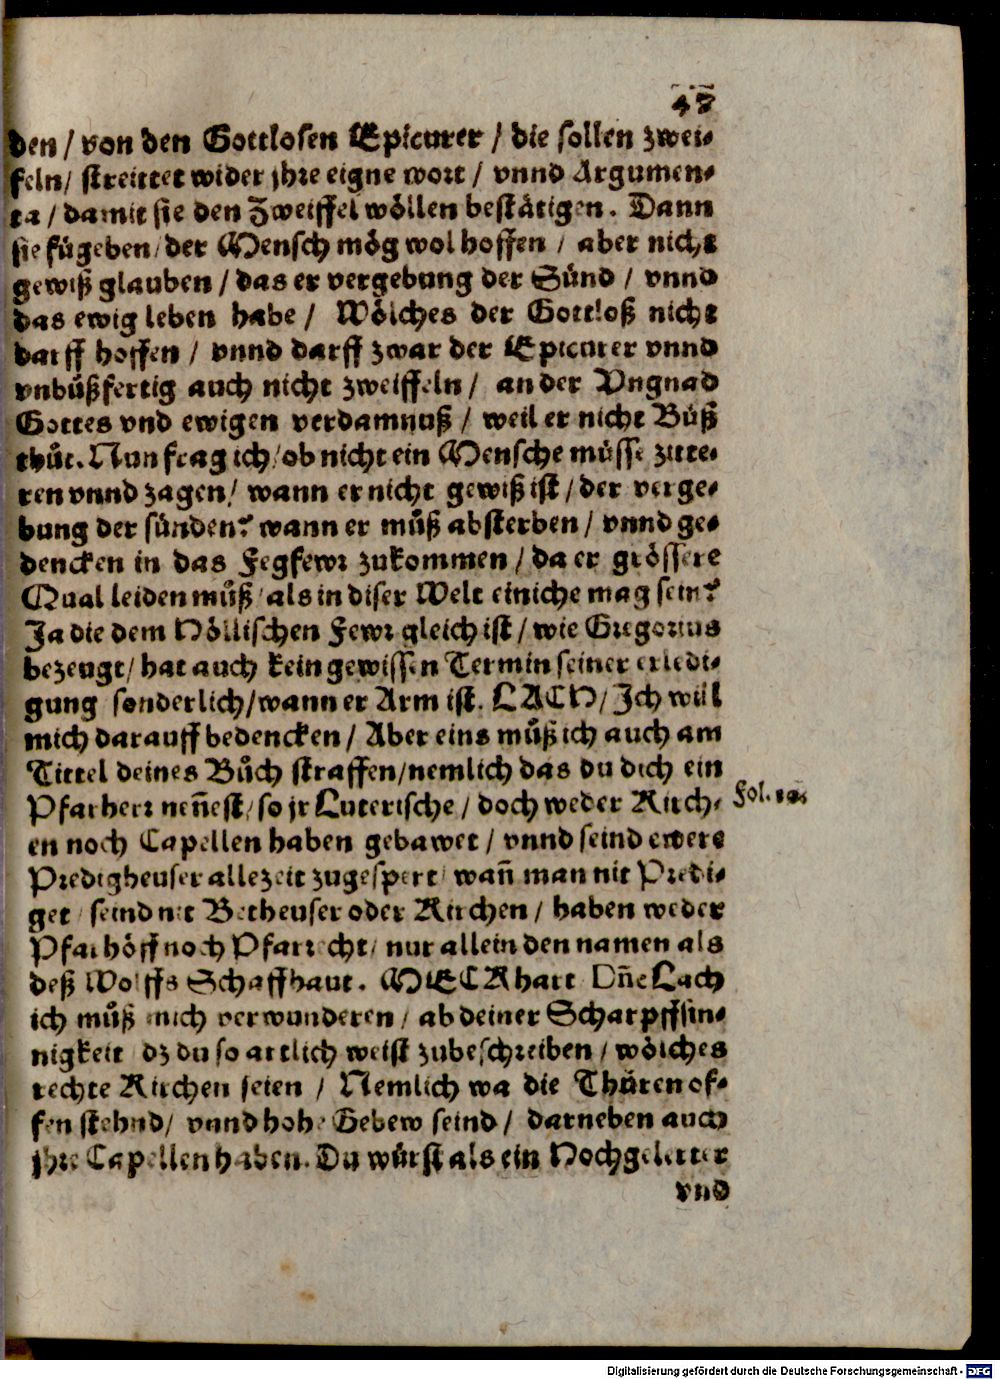 47
den / von den Gottlosen Epicurer / die sollen zwei-
feln / streittet wider jhre eigne wort / vnnd Argumen-
ta / damit sie den Zweiffel wöllen bestätigen. Dann
sie fügeben / der Mensch mög wol hoffen / aber nicht
gewiß glauben / das er vergebung der Sünd / vnnd
das ewig leben habe / Wölches der Gottloß nicht
darff hoffen / vnnd darff zwar der Epicurer vnnd
vnbůßfertig auch nicht zweiffeln / an der Vngnad
Gottes vnd ewigen verdamnuß / weil er nicht Bůß
thůt. Nun frag ich / ob nicht ein Mensche müsse zitte-
ren vnnd zagen / wann er nicht gewiß ist / der verge-
bung der sünden? wann er můß absterben / vnnd ge-
dencken in das Fegfewr zukommen / da er grössere
Qual leiden můß / als in diser Welt einiche mag sein?
Ja die dem Höllischen Fewr gleich ist / wie Gregorius
bezeugt / hat auch kein gewissen Termin seiner erledi-
gung sonderlich / wann er Arm ist. LACH / Ich will
mich darauff bedencken / Aber eins můß ich auch am
Tittel deines Bůch straffen / nemlich das du dich ein
Pfarherr neñest / so jr Luterische / doch weder Kirch-
Fol. 10.
en noch Capellen haben gebawet / vnnd seind ewere
Predigheuser allezeit zugespert / wañ man nit Predi-
get / seind nit Betheuser oder Kirchen / haben weder
Pfarhöff noch Pfarrecht / nur allein den namen als
deß Wolffs Schaffhaut. MECKhart Dñe Lach
ich můß mich verwunderen / ab deiner Scharpffsin-
nigkeit dz du so artlich weist zubeschreiben / wölches
rechte Kirchen seien / Nemlich wa die Thüren of-
fen stehnd / vnnd hohe Gebew seind / darneben auch
jhre Capellen haben. Du würst als ein Hochgelerter
vnd
Digitalisierung gefördert durch die Deutsche Forschungsgemeinschaft - DFG